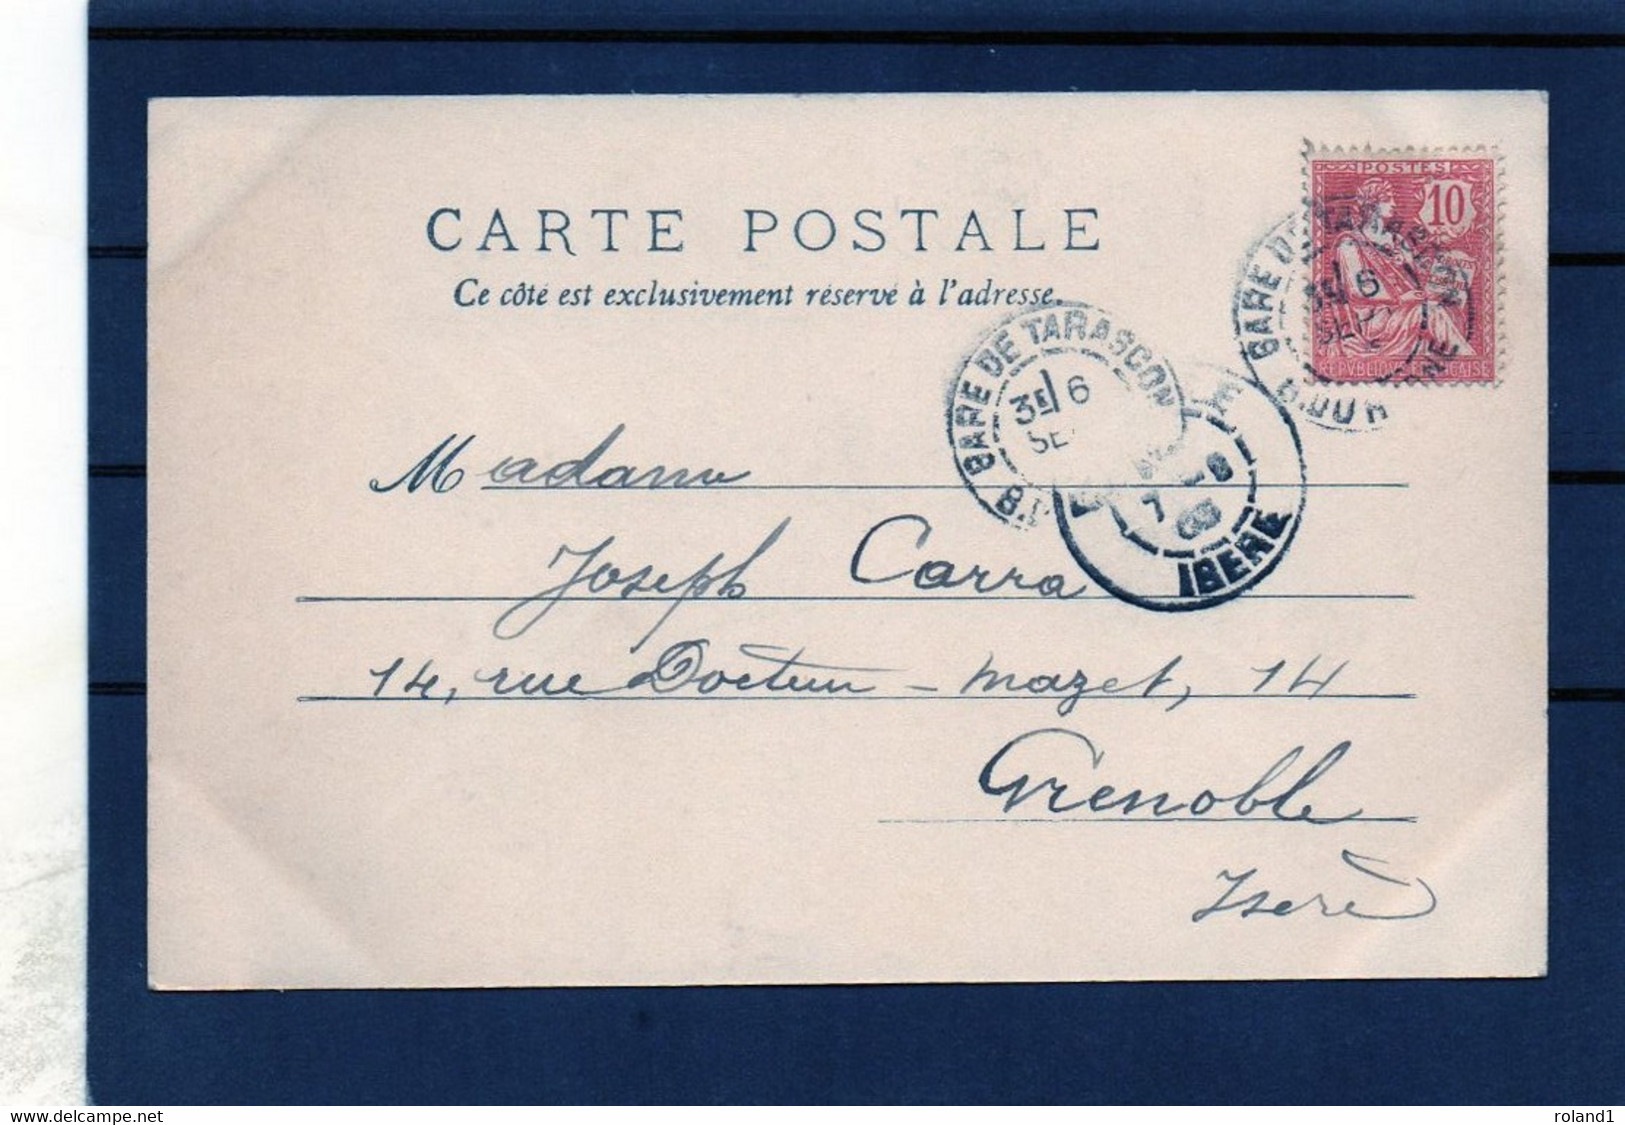 CARTE POSTALE
Ce côté est exclusivement réservé à l'adresse.
POSTES
10
GARE DE TARASCON
3E 6
SE
B.D
GARE DE TARASCON
6
SEP
B.DU RHÔNE
REPVBLIQVE FRANÇAISE
7 - 9
03
ISERE
Madame
Joseph Carra
14, rue Docteur - Mazet, 14
Grenoble
Isère
www.delcampe.net
roland1